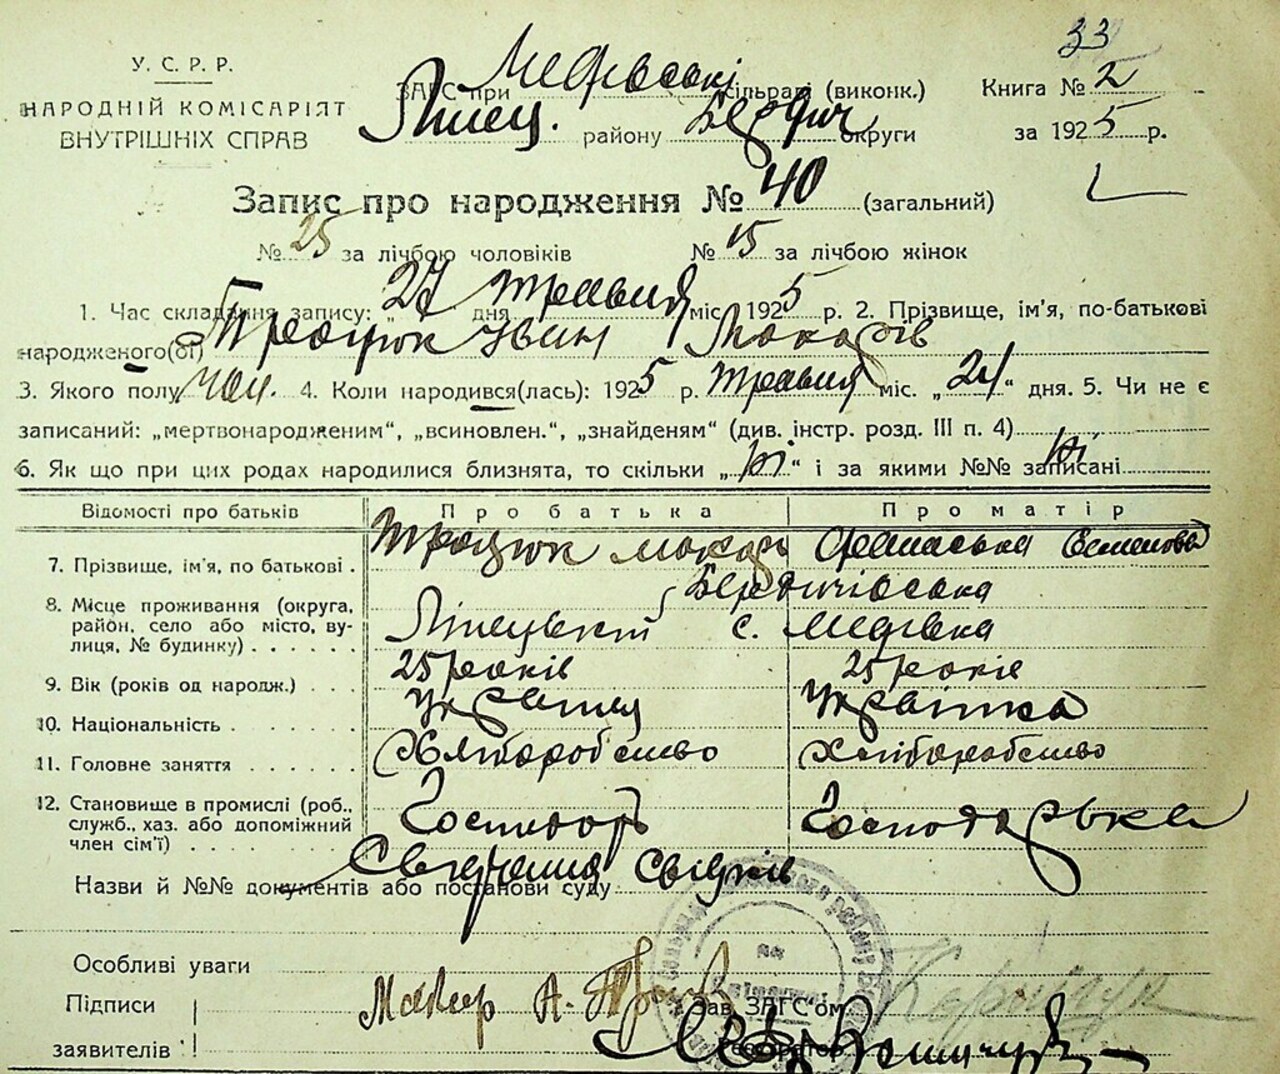 33
У. С. Р. Р.
НАРОДНІЙ КОМІСАРІЯТ
ВНУТРІШНІХ СПРАВ
ЗАГС при Медівські сільраді (виконк.)
Ліпец. району Бердич округи
Книга № 2
за 1925 р.
Запис про народження № 40 (загальний)
№ 25 за лічбою чоловіків № 15 за лічбою жінок
1. Час складання запису: „27 дня травня міс. 1925 р. 2. Прізвище, ім'я, по-батькові
народженого(ої) Троцюк Іван Макарів
3. Якого полу чол. 4. Коли народився(лась): 1925 р. травня міс. „24“ дня. 5. Чи не є
записаний: „мертвонародженим“, „всиновлен.“, „знайденям“ (див. інстр. розд. III п. 4)
6. Як що при цих родах народилися близнята, то скільки „ні“ і за якими №№ записані ні
Відомості про батьків Про батька Про матір
7. Прізвище, ім'я, по батькові . Троцюк Макар Семенова
8. Місце проживання (округа, район, село або місто, вулиця, № будинку) . . . . . .
Бердичівська
Ліпецький с. Медівка
9. Вік (років од народж.) . . . 25 років 25 років
10. Національність . . . . . . Українец Українка
11. Головне заняття . . . . . . Хліборобство Хліборобство
12. Становище в промислі (роб., служб., хаз. або допоміжний член сім'ї) . . . . . . Господарь Господарька
Назви й №№ документів або постанови суду Свідчення свідків
Особливі уваги
Підписи
заявителів
Макар А.
Зав. ЗАГС'ом
Реєстратор